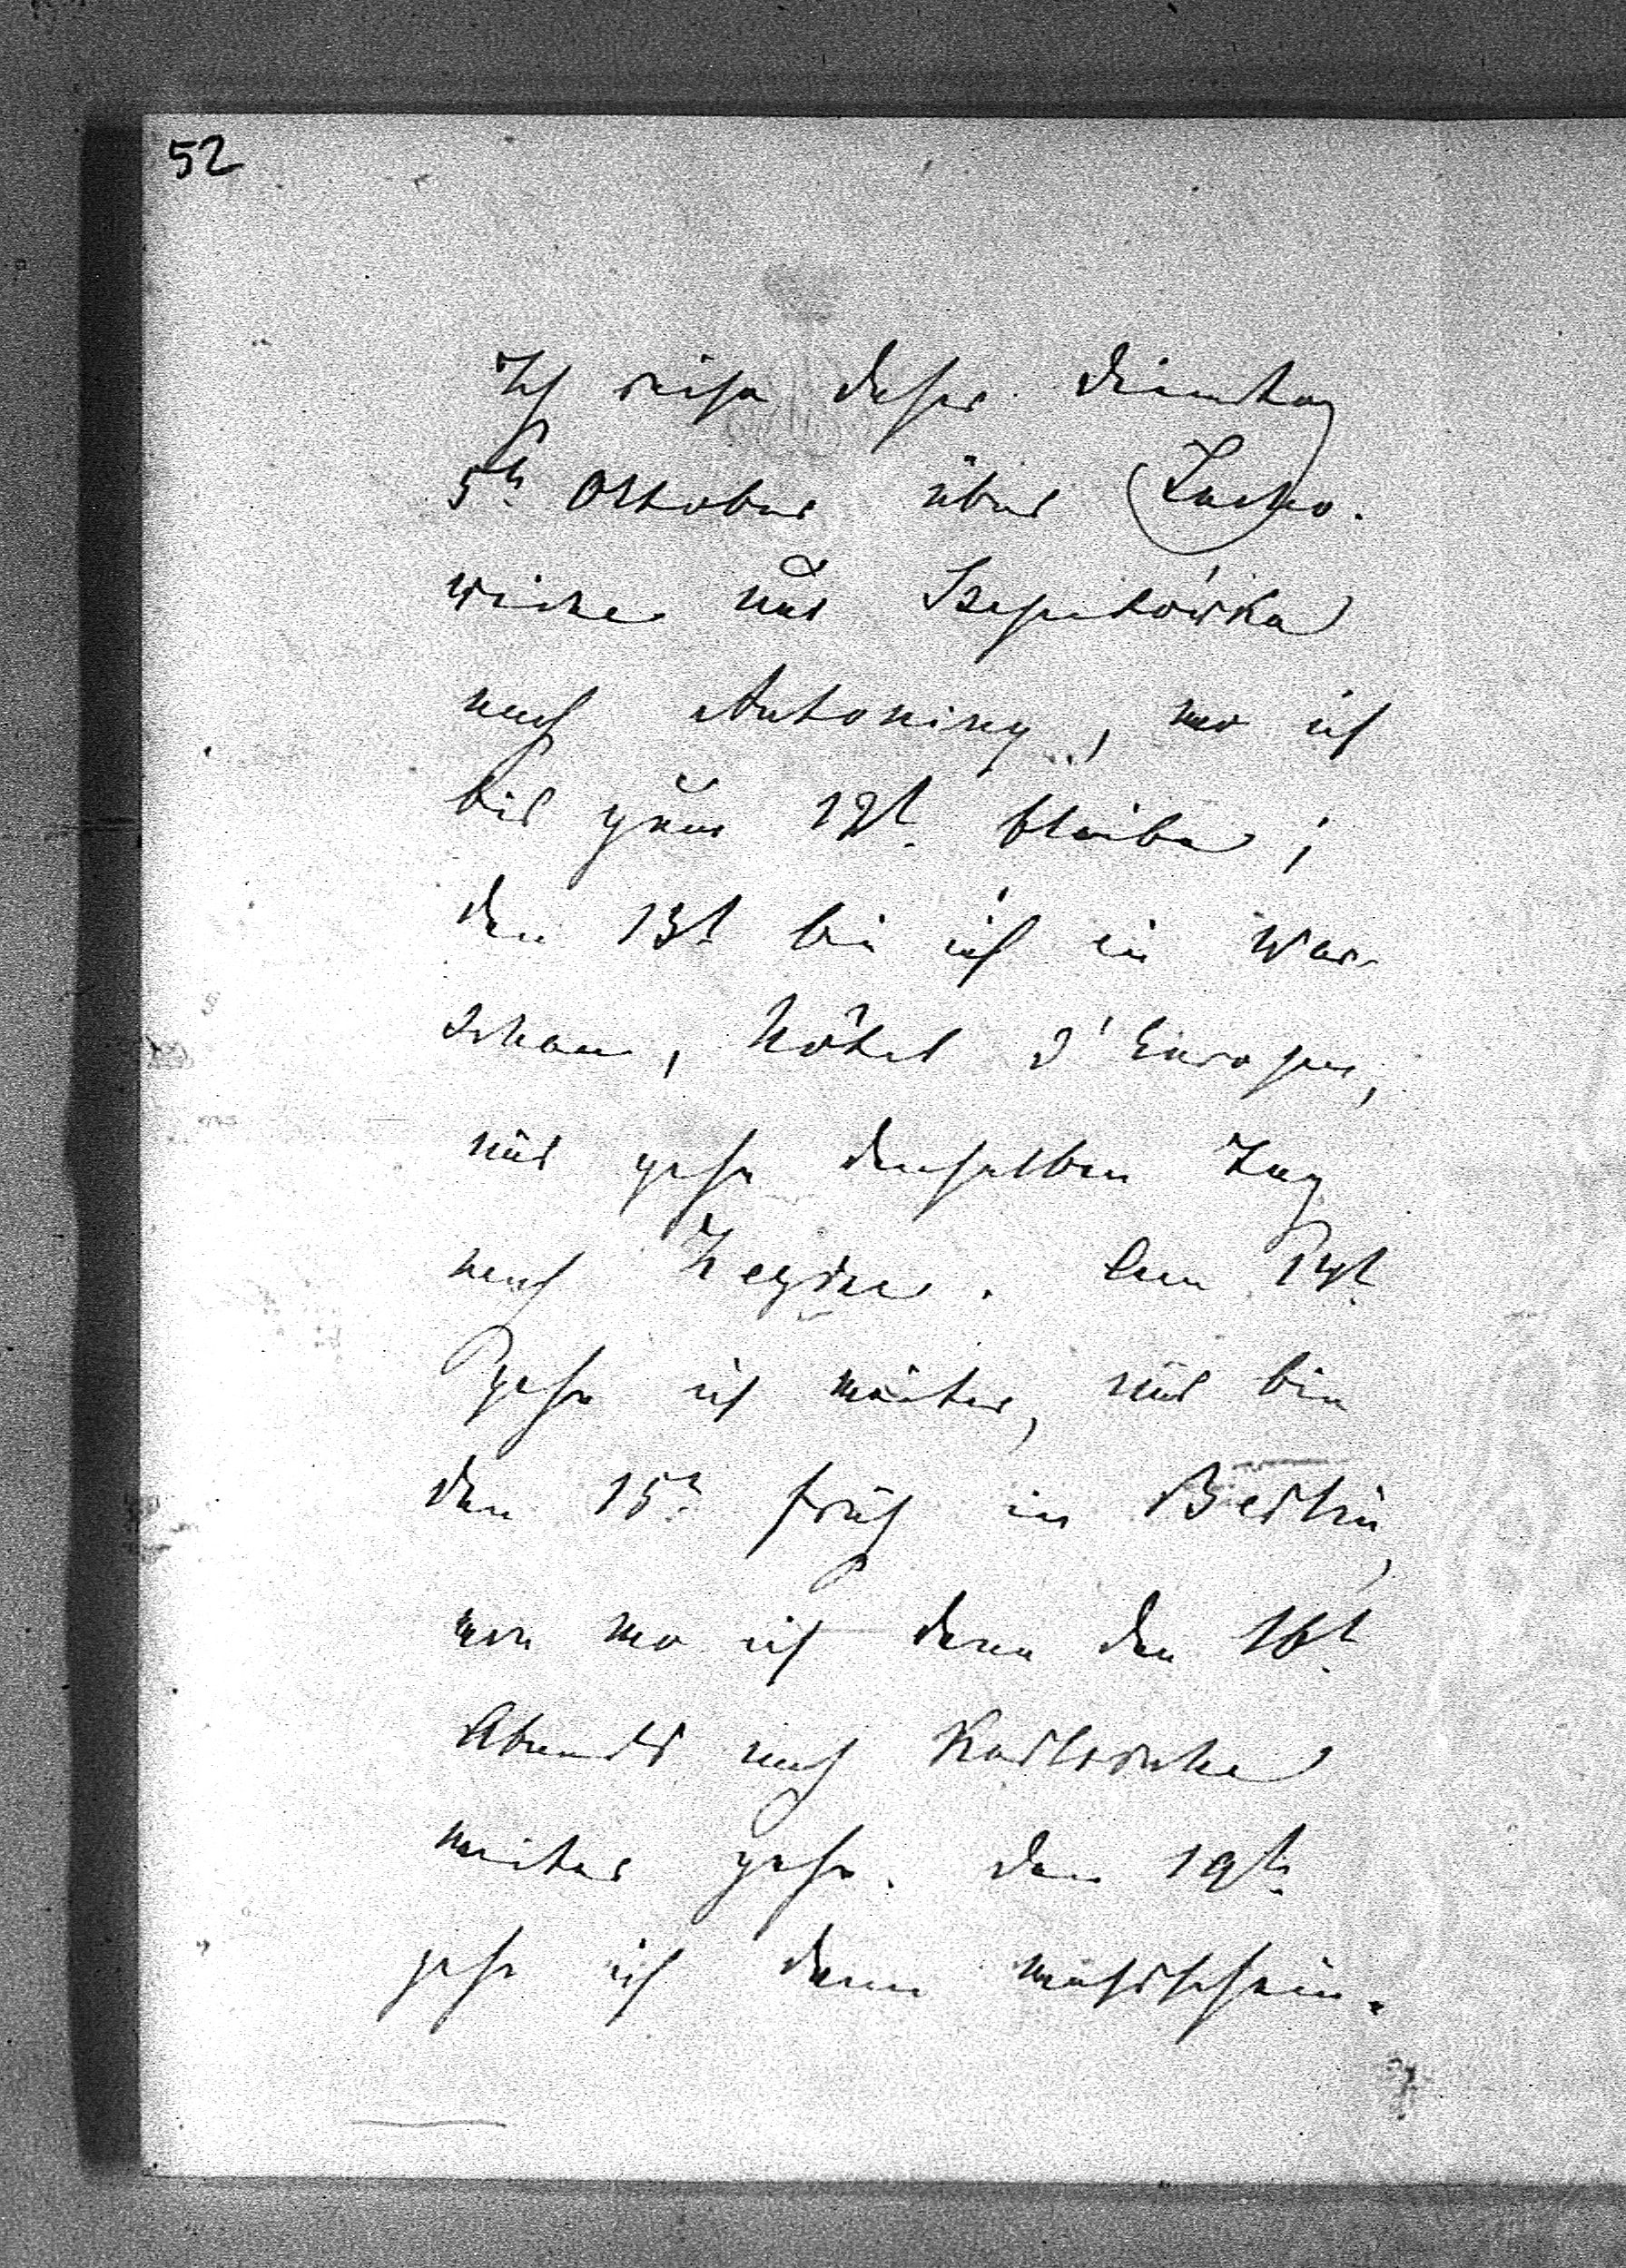 52
Ich reise daher Dienstag
5t. Oktober über Zasko-
wice und Szepetówka
nach Antoniny, wo ich
bis zum 12t. bleibe;
den 13t bin ich in War-
schau, Hôtel d'Europe,
und gehe denselben Tag
nach . Den 14t.
gehe ich weiter, und bin
den 15t. früh in Berlin,
von wo ich dann den 16t.
Abends nach Karlsruhe
weiter gehe. Den 19t.
gehe ich dann wahrschein-